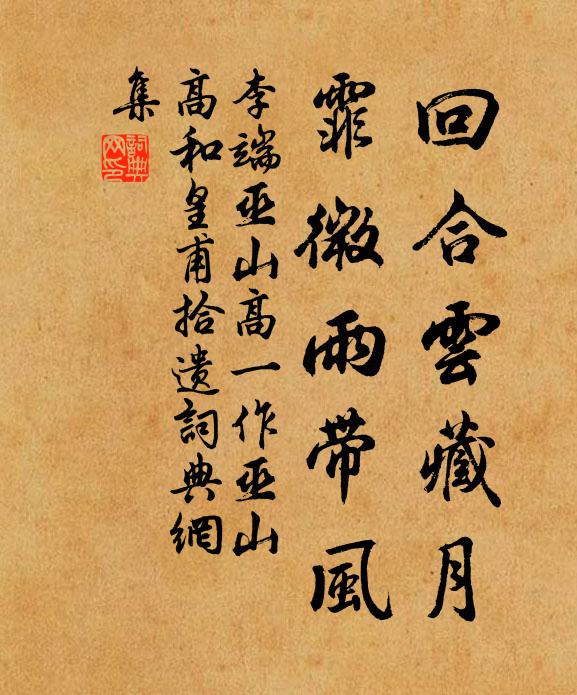 回合雲藏月
霏微雨带風
李端巫山高一作巫山
高和皇甫拾遺詞典網
集
詞典网印